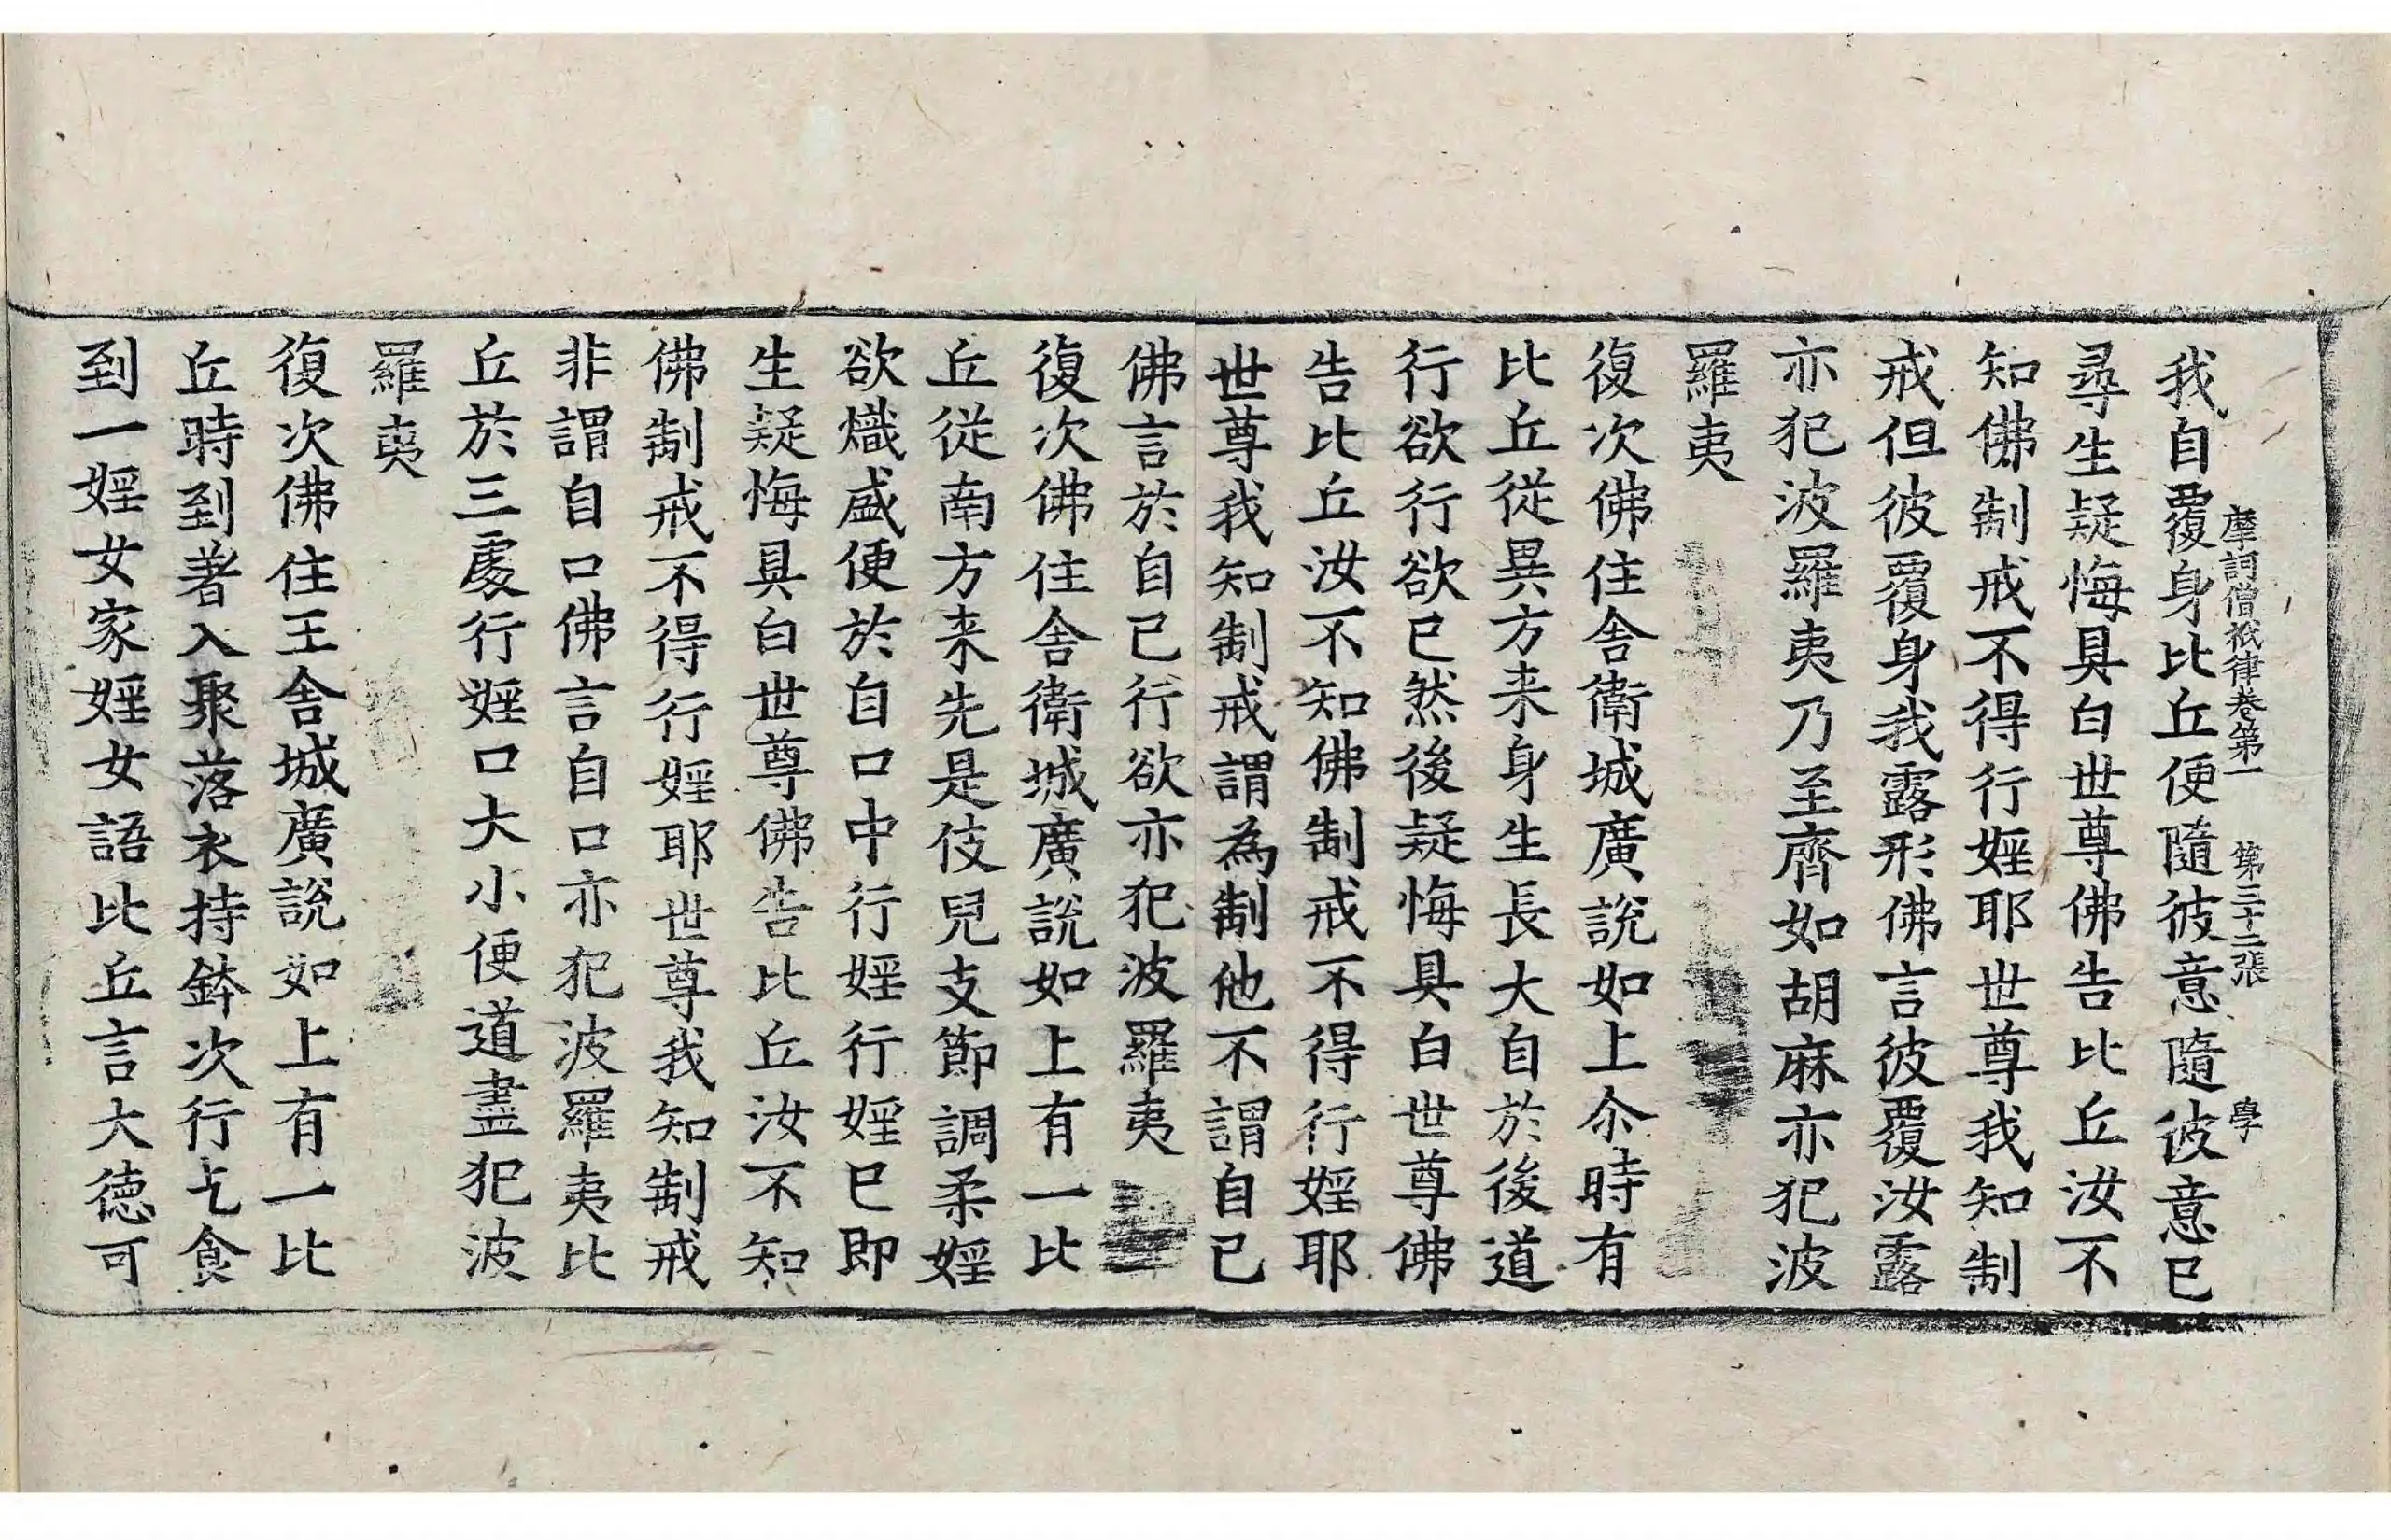 摩訶僧祇律卷第一　第三十二張　學
我自覆身比丘便隨彼意隨彼意已
尋生疑悔具白世尊佛告比丘汝不
知佛制戒不得行婬耶世尊我知制
戒但彼覆身我露形佛言彼覆汝露
亦犯波羅夷乃至齊如胡麻亦犯波
羅夷
復次佛住舍衛城廣說如上尒時有
比丘從異方来身生長大自於後道
行欲行欲已然後疑悔具白世尊佛
告比丘汝不知佛制戒不得行婬耶
世尊我知制戒謂為制他不謂自已
佛言於自已行欲亦犯波羅夷
復次佛住舍衛城廣說如上有一比
丘從南方来先是伎兒支節調柔婬
欲熾盛便於自口中行婬行婬已即
生疑悔具白世尊佛告比丘汝不知
佛制戒不得行婬耶世尊我知制戒
非謂自口佛言自口亦犯波羅夷比
丘於三處行婬口大小便道盡犯波
羅夷
復次佛住王舍城廣說如上有一比
丘時到著入聚落衣持鉢次行乞食
到一婬女家婬女語比丘言大德可